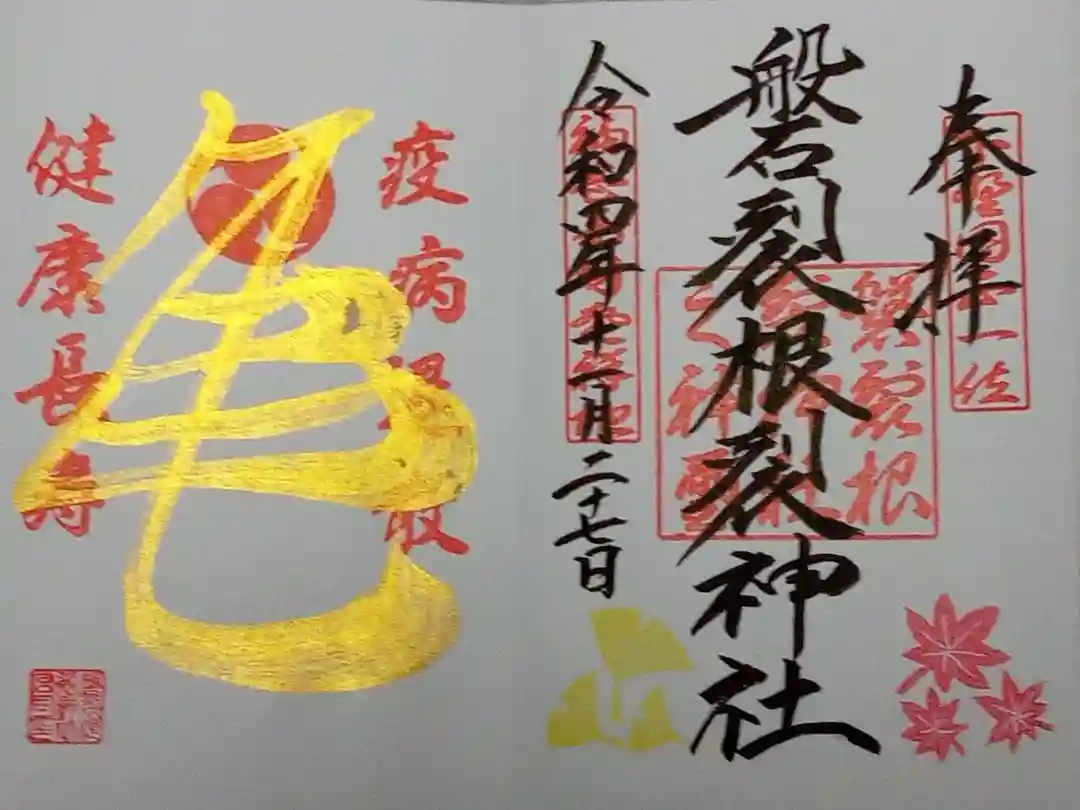 奉拝
磐裂根裂神社
磐裂根
裂神社
之神璽
令和四年十一月二十七日
疫病退散
亀
健康長寿